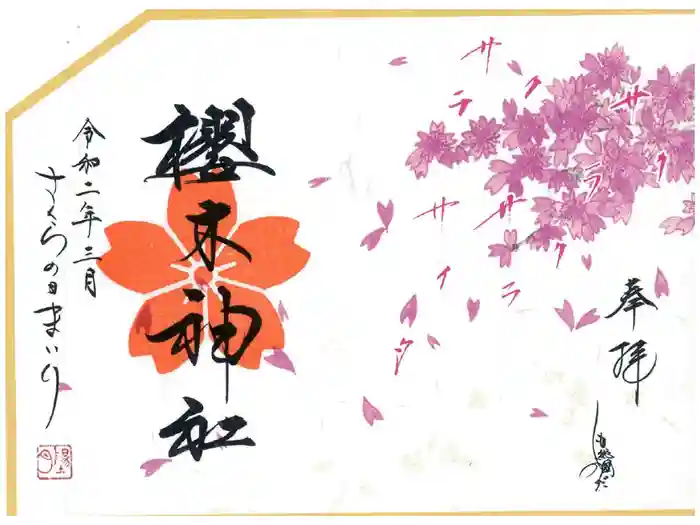 奉拝
櫻木神社
令和二年三月
さくらの日まいり
サクラ
サクラ
サクラ
サイタ